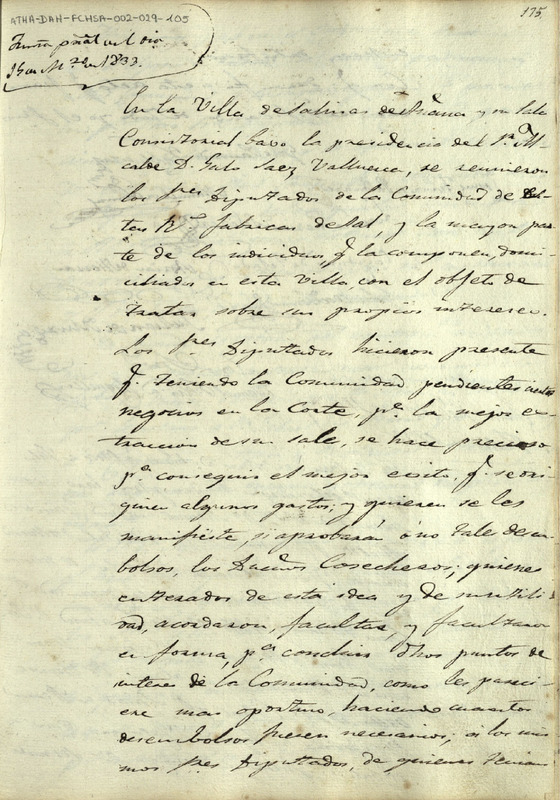 ATHA-DAH-FCHSA-002-029-105
175.
Junta gral del dia
15 en 1833.
En la Villa de Salinas de Añana y su Sala
Consistorial baxo la presidencia del Sr. Al-
calde D. Galo Saez Valluerca, se reunieron
los Sres Diputados de la Comunidad de Es-
tas Rs. fabricas de Sal, y la mayor par-
te de los individuos q. la componen, domi-
ciliados en esta Villa con el objeto de
tratar sobre sus propios intereses.
Los Sres Diputados hicieron presente
q. teniendo la Comunidad pendientes ciertos
negocios en la Corte, pa. la mejor es-
traccion de su Sal, se hace preciso
pa. conseguir el mejor exito, q. se ori-
ginen algunos gastos; y quieren se les
manifieste, si aprobarán ó no tales desem-
bolsos, los Dueños Cosecheros; quienes
enterados de esta idea y de su utili-
dad, acordaron, facultar, y facultaron
en forma, pa. concluir dhos puntos de
interes de la Comunidad, como les pareci-
ere mas oportuno, haciendo cuantos
desembolsos fuesen necesarios; á los mis-
mos Sres Diputados, de quienes tienen